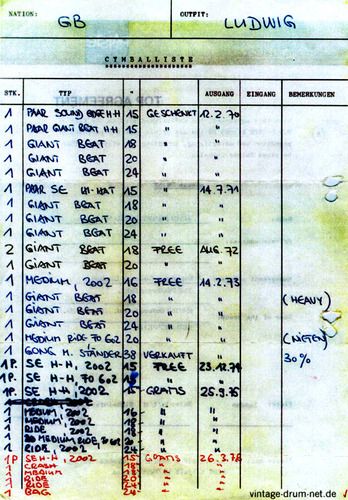 NATION: GB OUTFIT: LUDWIG
CYMBALLISTE
STK. TYP " AUSGANG EINGANG BEMERKUNGEN
1 PAAR SOUND EDGE H-H 15 GESCHENKT 12.2.70
1 PAAR GIANT BEAT H-H 15 " "
1 GIANT BEAT 18 " "
1 GIANT BEAT 20 " "
1 GIANT BEAT 24 " "
1 PAAR SE HI-HAT 15 " 14.7.71
1 GIANT BEAT 18 " "
1 GIANT BEAT 20 " "
1 GIANT BEAT 24 " "
2 GIANT BEAT 18 FREE AUG. 72
1 GIANT BEAT 20 " "
1 MEDIUM, 2002 16 FREE 14.2.73
1 GIANT BEAT 18 " " (HEAVY)
1 GIANT BEAT 20 " "
1 GIANT BEAT 24 " "
1 MEDIUM RIDE FO 602 20 " " (NIETEN)
1 GONG M. STÄNDER 38 VERKAUFT " 30%
1P. SE H-H, 2002 15 FREE 23.12.74
1P. SE H-H, FO 602 " "
1P. SE H-H, 2002 15 GRATIS 25.9.75
1 MEDIUM, 2002 16 " "
1 MEDIUM, 2002 18 " "
1 RIDE, 2002 " "
1 MEDIUM RIDE, FO 602 20 " "
1 RIDE, 2002 24 " "
1P SE H-H, 2002 15 GRATIS 26.3.76
1 CRASH " "
1 MEDIUM 18 " "
1 RIDE " "
1 RIDE 24 " "
1 BAG 24 " "
vintage-drum-net.de